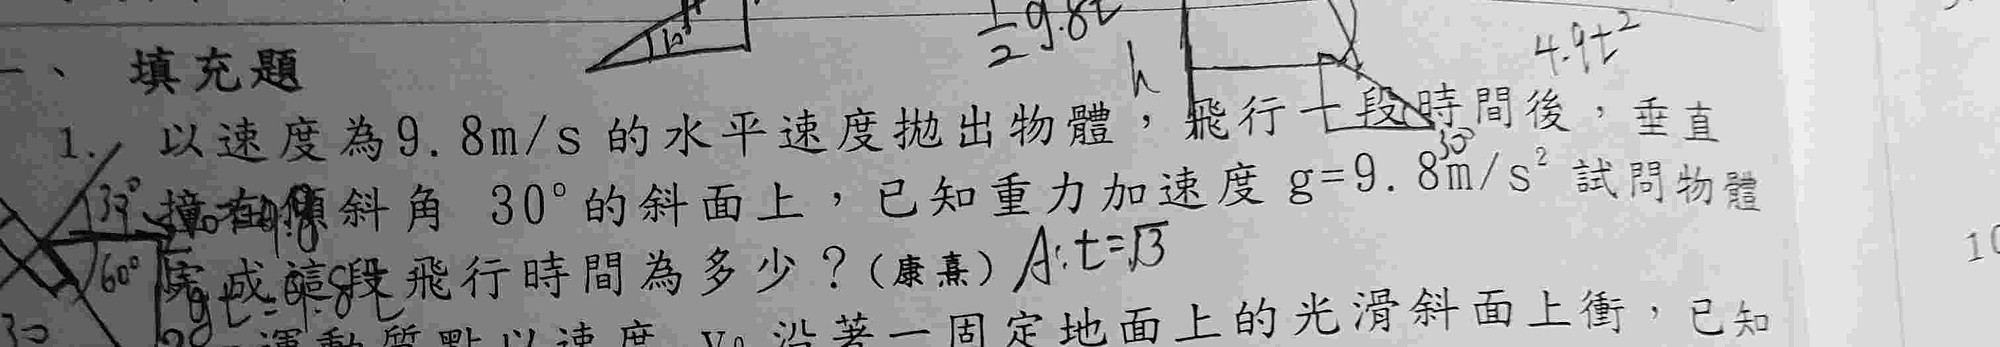 ½9.8t
h
4.9t²
一、填充題
1. 以速度為9.8m/s的水平速度拋出物體，飛行一段時間後，垂直
30
30° 撞在傾斜角 30°的斜面上，已知重力加速度 g=9.8m/s² 試問物體
60° 完成這段飛行時間為多少？(康熹) A:t=√3
30
運動質點以速度 v₀ 沿著一固定地面上的光滑斜面上衝，已知